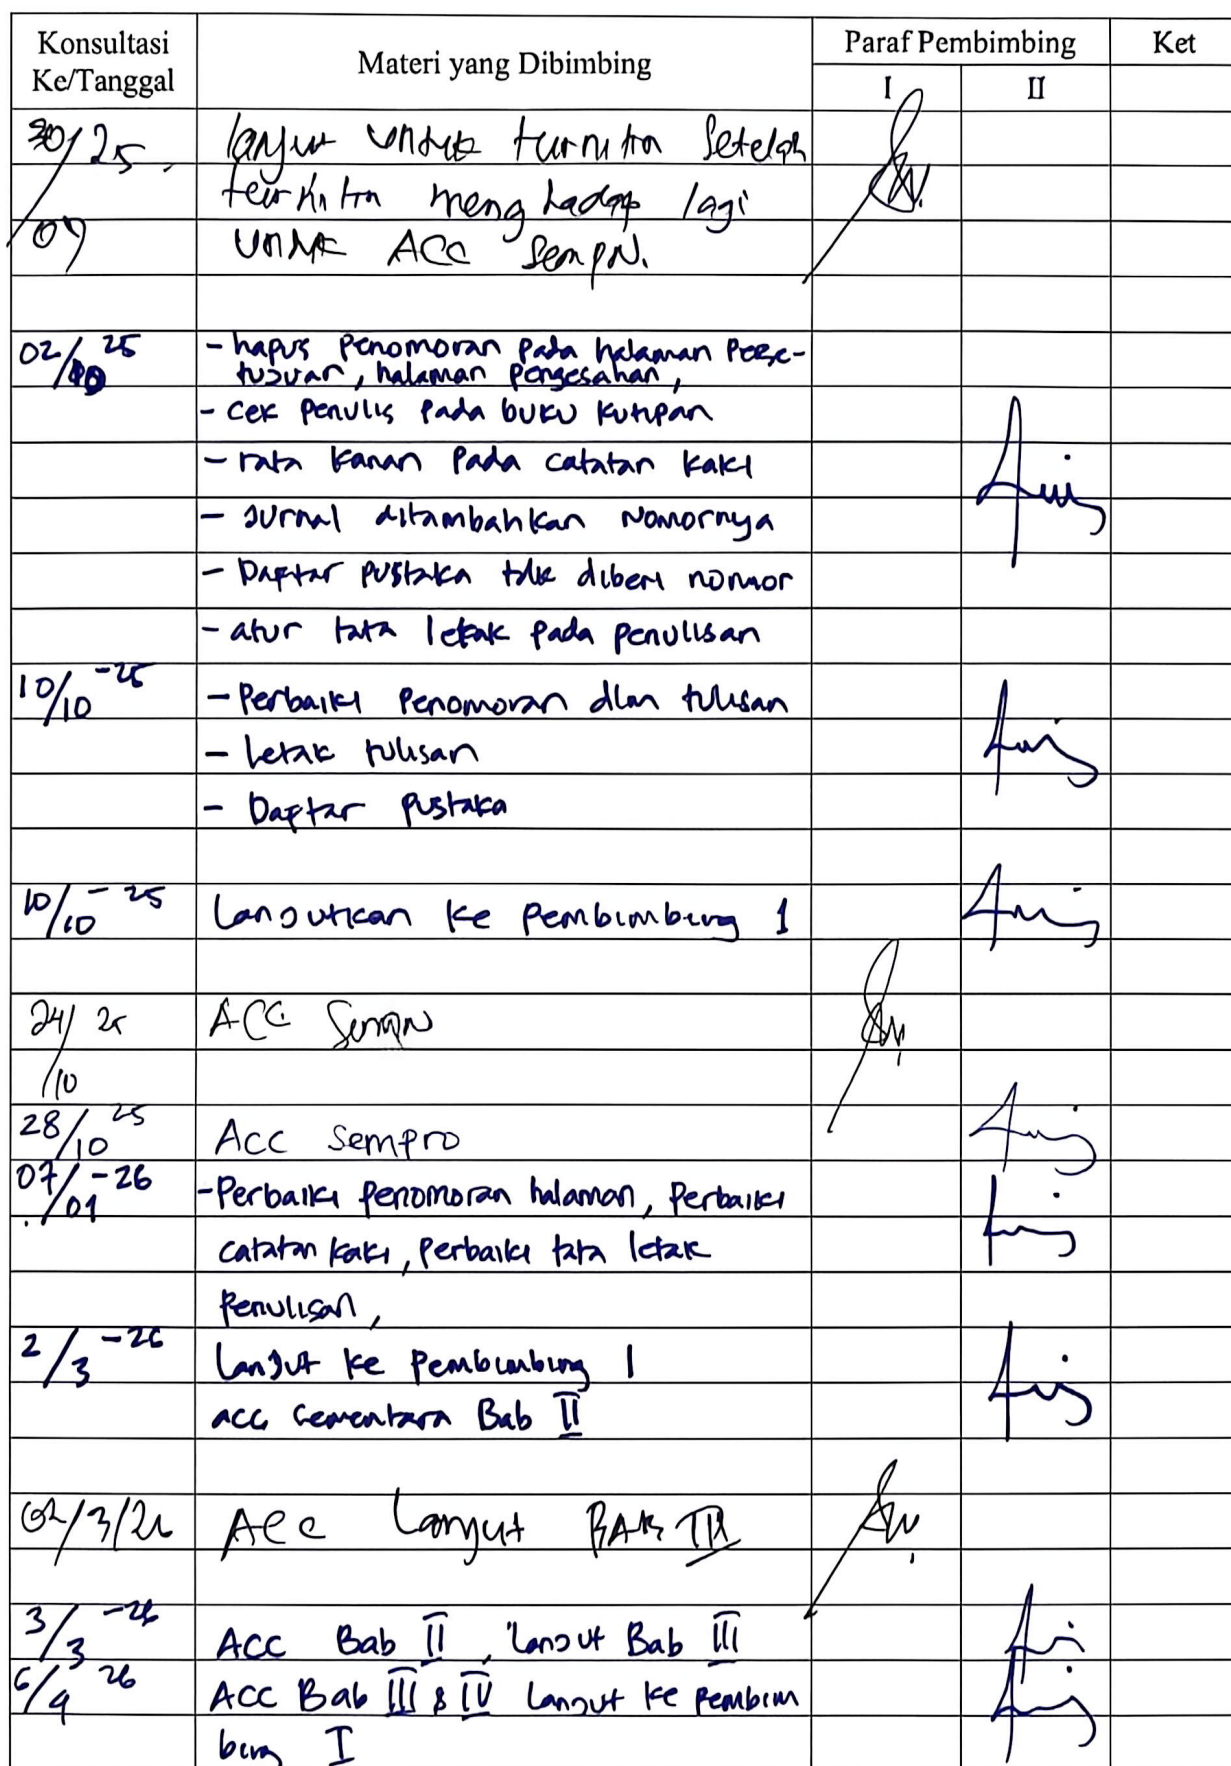 Konsultasi Ke/Tanggal Materi yang Dibimbing Paraf Pembimbing Ket
I II
30/25 lanjut untuk turnitin setelah
turnitin menghadap lagi
09 untuk ACC Sempro.
02/10 25 - hapus penomoran pada halaman perse-
tujuan, halaman pengesahan,
- cek penulis pada buku kutipan
- rata kanan pada catatan kaki
- Jurnal ditambahkan nomornya
- Daftar pustaka tdk diberi nomor
- atur tata letak pada penulisan
10/10 -25 - Perbaiki penomoran dlm tulisan
- letak tulisan
- Daftar pustaka
10/10 - 25 Lanjutkan ke pembimbing 1
24/ 25 ACC Sempro
/10
28/10 25 ACC Sempro
07/01 -26 - Perbaiki penomoran halaman, Perbaiki
catatan kaki, perbaiki tata letak
penulisan,
2/3 -26 Lanjut ke pembimbing 1
acc sementara Bab II
02/3/26 Acc Lanjut BAB III
3/3 -26 ACC Bab II, lanjut Bab III
6/4 26 ACC Bab III & IV lanjut ke pembim
bing I